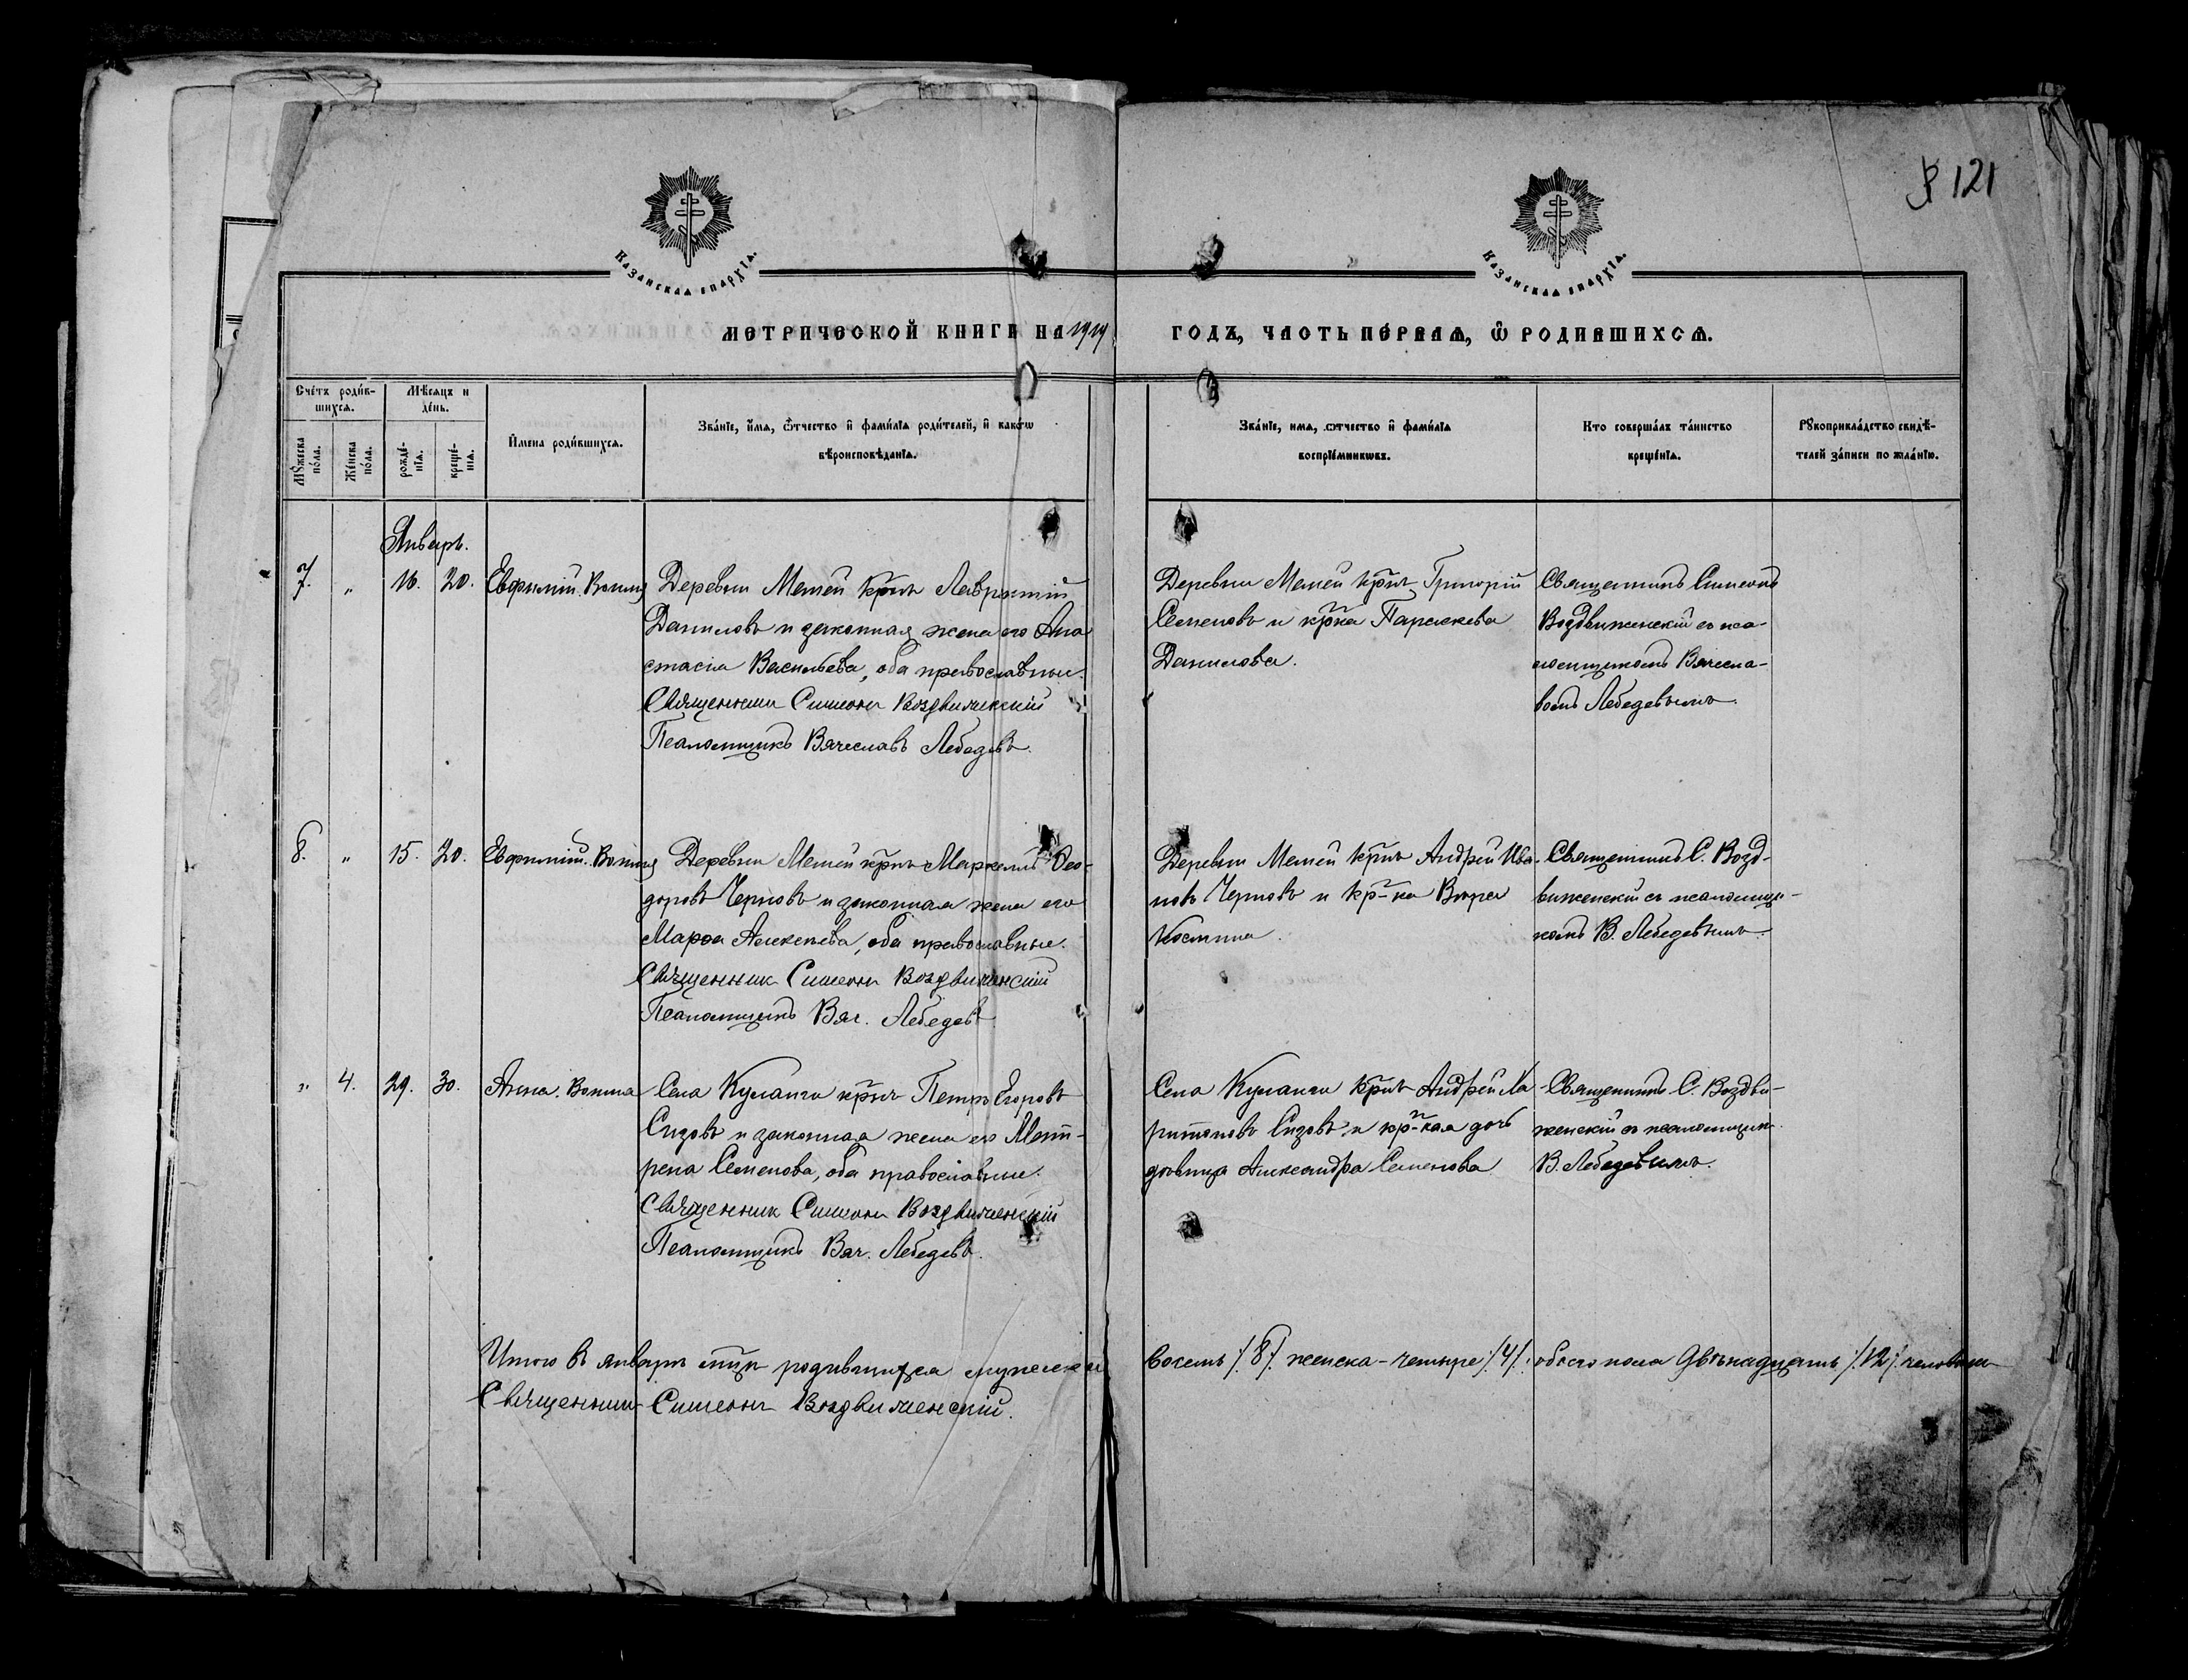 121
КАЗАНСКАЯ ЕПАРХІЯ.
КАЗАНСКАЯ ЕПАРХІЯ.
МЕТРИЧЕСКОЙ КНИГИ НА 1919 ГОДЪ, ЧАСТЬ ПЕ́РВАѦ, Ѡ РОДИВШИХСѦ.
Сче́тъ роди́вшихсѧ.
Мѣ́сѧцъ и де́нь.
Мꙋ́жеска по́ла.
Же́нска по́ла.
рожде́нїѧ.
креще́нїѧ.
И҆мена роди́вшихсѧ.
Зва́нїе, и҆́мѧ, ѻ҆́тчество и҆ фами́лїѧ роди́телей, и҆ како́гѡ
вѣроисповѣ́данїѧ.
Зва́нїе, имѧ, ѻтчество и҆ фами́лїѧ
воспрїе́мникѡвъ.
Кто соверша́лъ та́инство
креще́нїѧ.
Рꙋкоприкла́дство свидѣ́-
телей за́писи по жела́нїю.
Январь.
7. „ 16. 20. Евфимій. Вотина
Деревни Мемей кр-нъ Лаврентій
Даниловъ и законная жена его Ана
стасія Васильева, оба православные.
Священникъ Симеонъ Воздвиженскій
Псаломщикъ Вячеславъ Лебедевъ.
Деревни Мемей кр-нъ Григорій
Семеновъ и кр-ка Параскева
Данилова.
Священникъ Симеонъ
Воздвиженскій съ пса-
ломщикомъ Вячесла-
вомъ Лебедевымъ.
8. „ 15. 20. Евфимій. Вотина
Деревни Мемей кр-нъ Маркеллъ Ѳео-
доровъ Черновъ и законная жена его
Марѳа Алексѣева, оба православные.
Священникъ Симеонъ Воздвиженскій
Псаломщикъ Вяч. Лебедевъ
Деревни Мемей кр-нъ Андрей Ива-
новъ Черновъ и кр-ка Вѣра
Костина.
Священникъ С. Возд-
виженскій съ псаломщи-
комъ В. Лебедевымъ.
„ 4. 29. 30. Анна. Вотина
Села Куланги кр-нъ Петръ Егоровъ
Сизовъ и законная жена его Мат-
рена Семенова, оба православные.
Священникъ Симеонъ Воздвиженскій
Псаломщикъ Вяч. Лебедевъ.
Села Куланги кр-нъ Андрей Ха
ритоновъ Сизовъ и кр-кая дочь
дѣвица Александра Семенова
Священникъ С. Воздви-
женскій съ псаломщик.
В. Лебедевымъ.
Итого въ январѣ м-цѣ родившихся мужеска восемь /8/ женска - четыре /4/, обоего пола двѣнадцать /12/ человѣкъ
Священникъ Симеонъ Воздвиженскій.